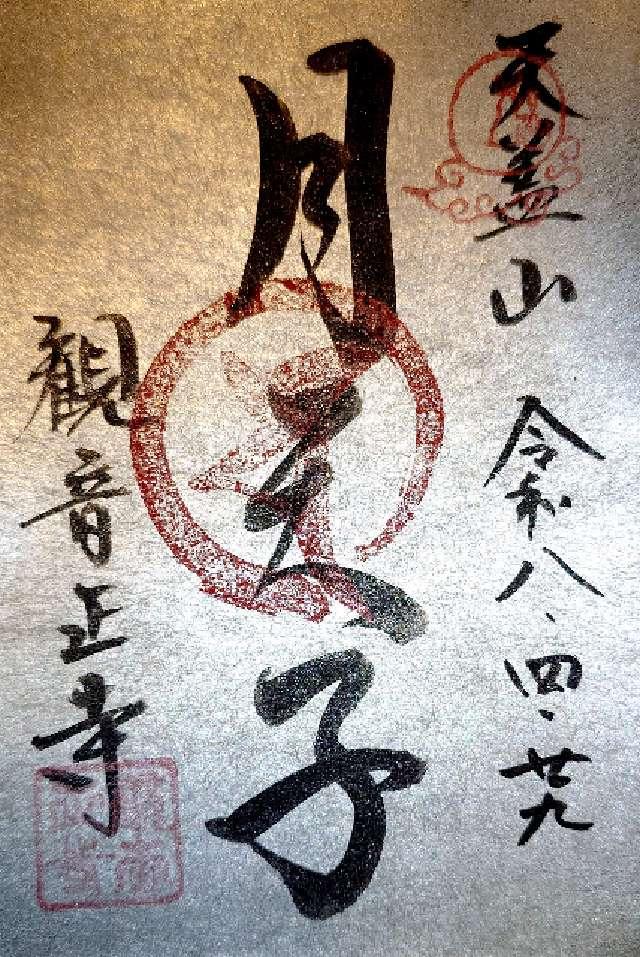 天蓋山 令和八、四、廿九
月天子
観音正寺